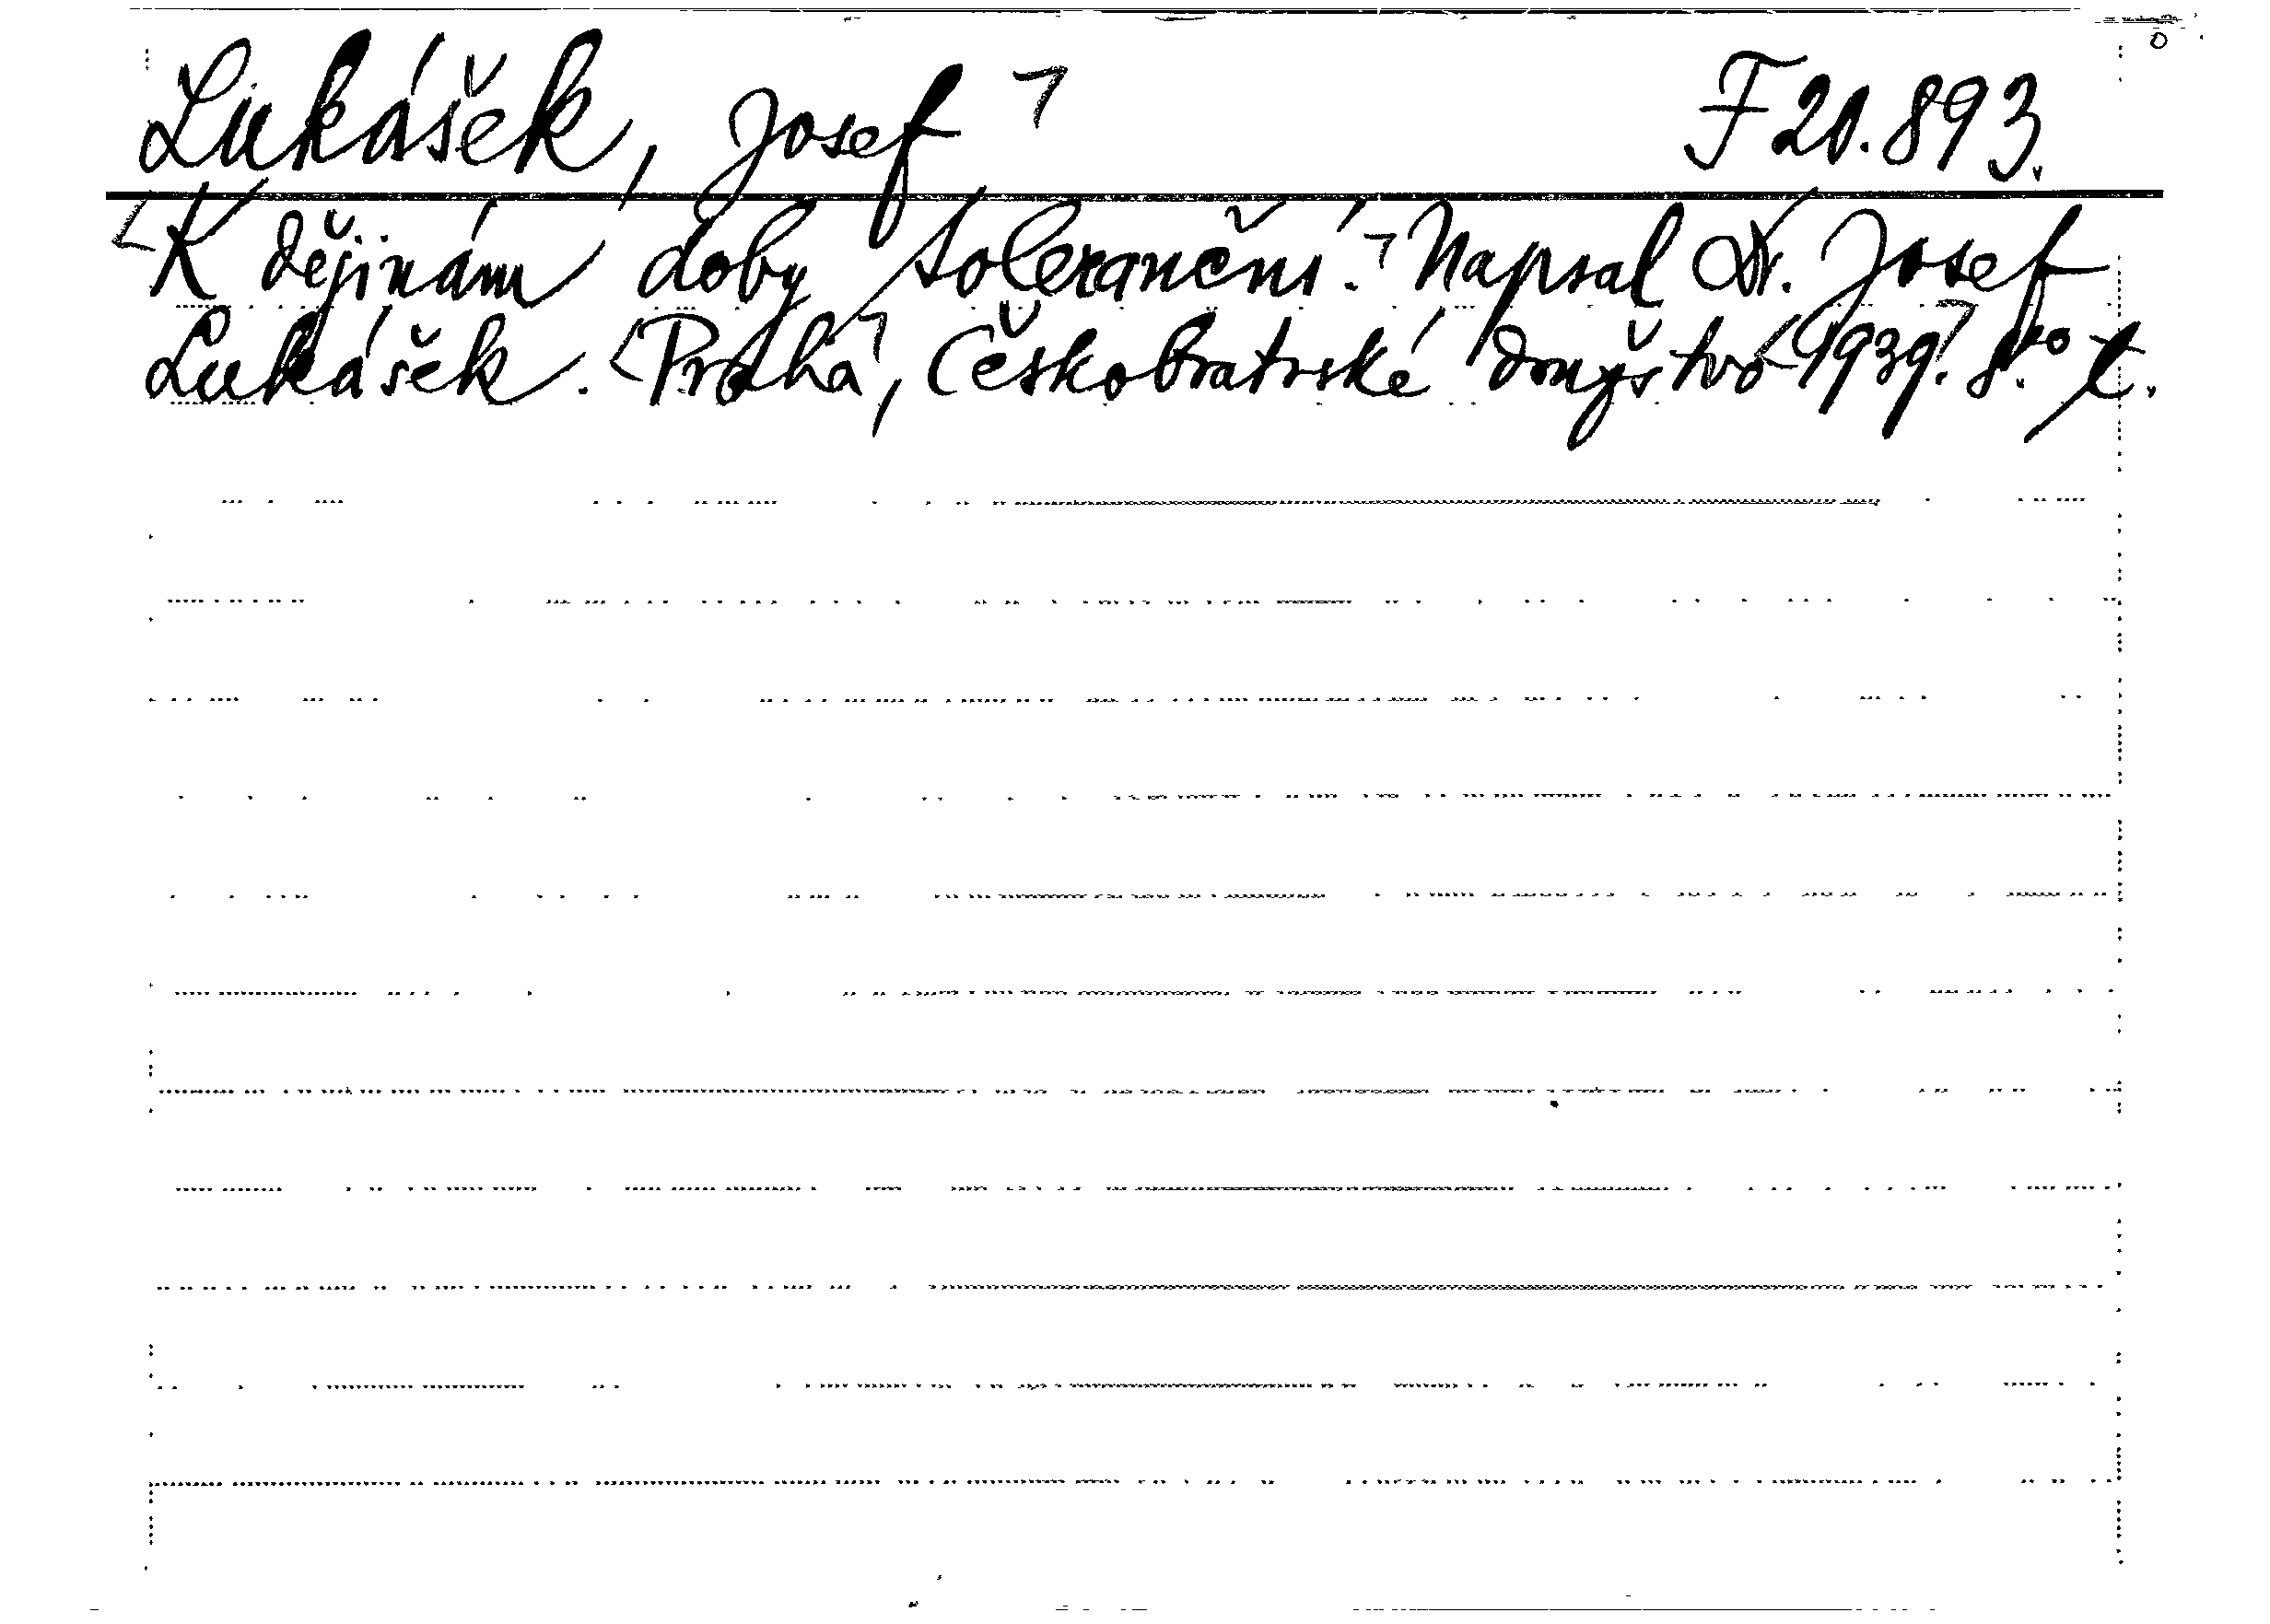 Lukášek, Josef ㄱ F 20.893.
<K dějinám doby toleranční.ㄱ Napsal Dr. Josef
Lukášek. <Prahaㄱ, Českobratrské družstvo <1939.ㄱ 8.vo č.